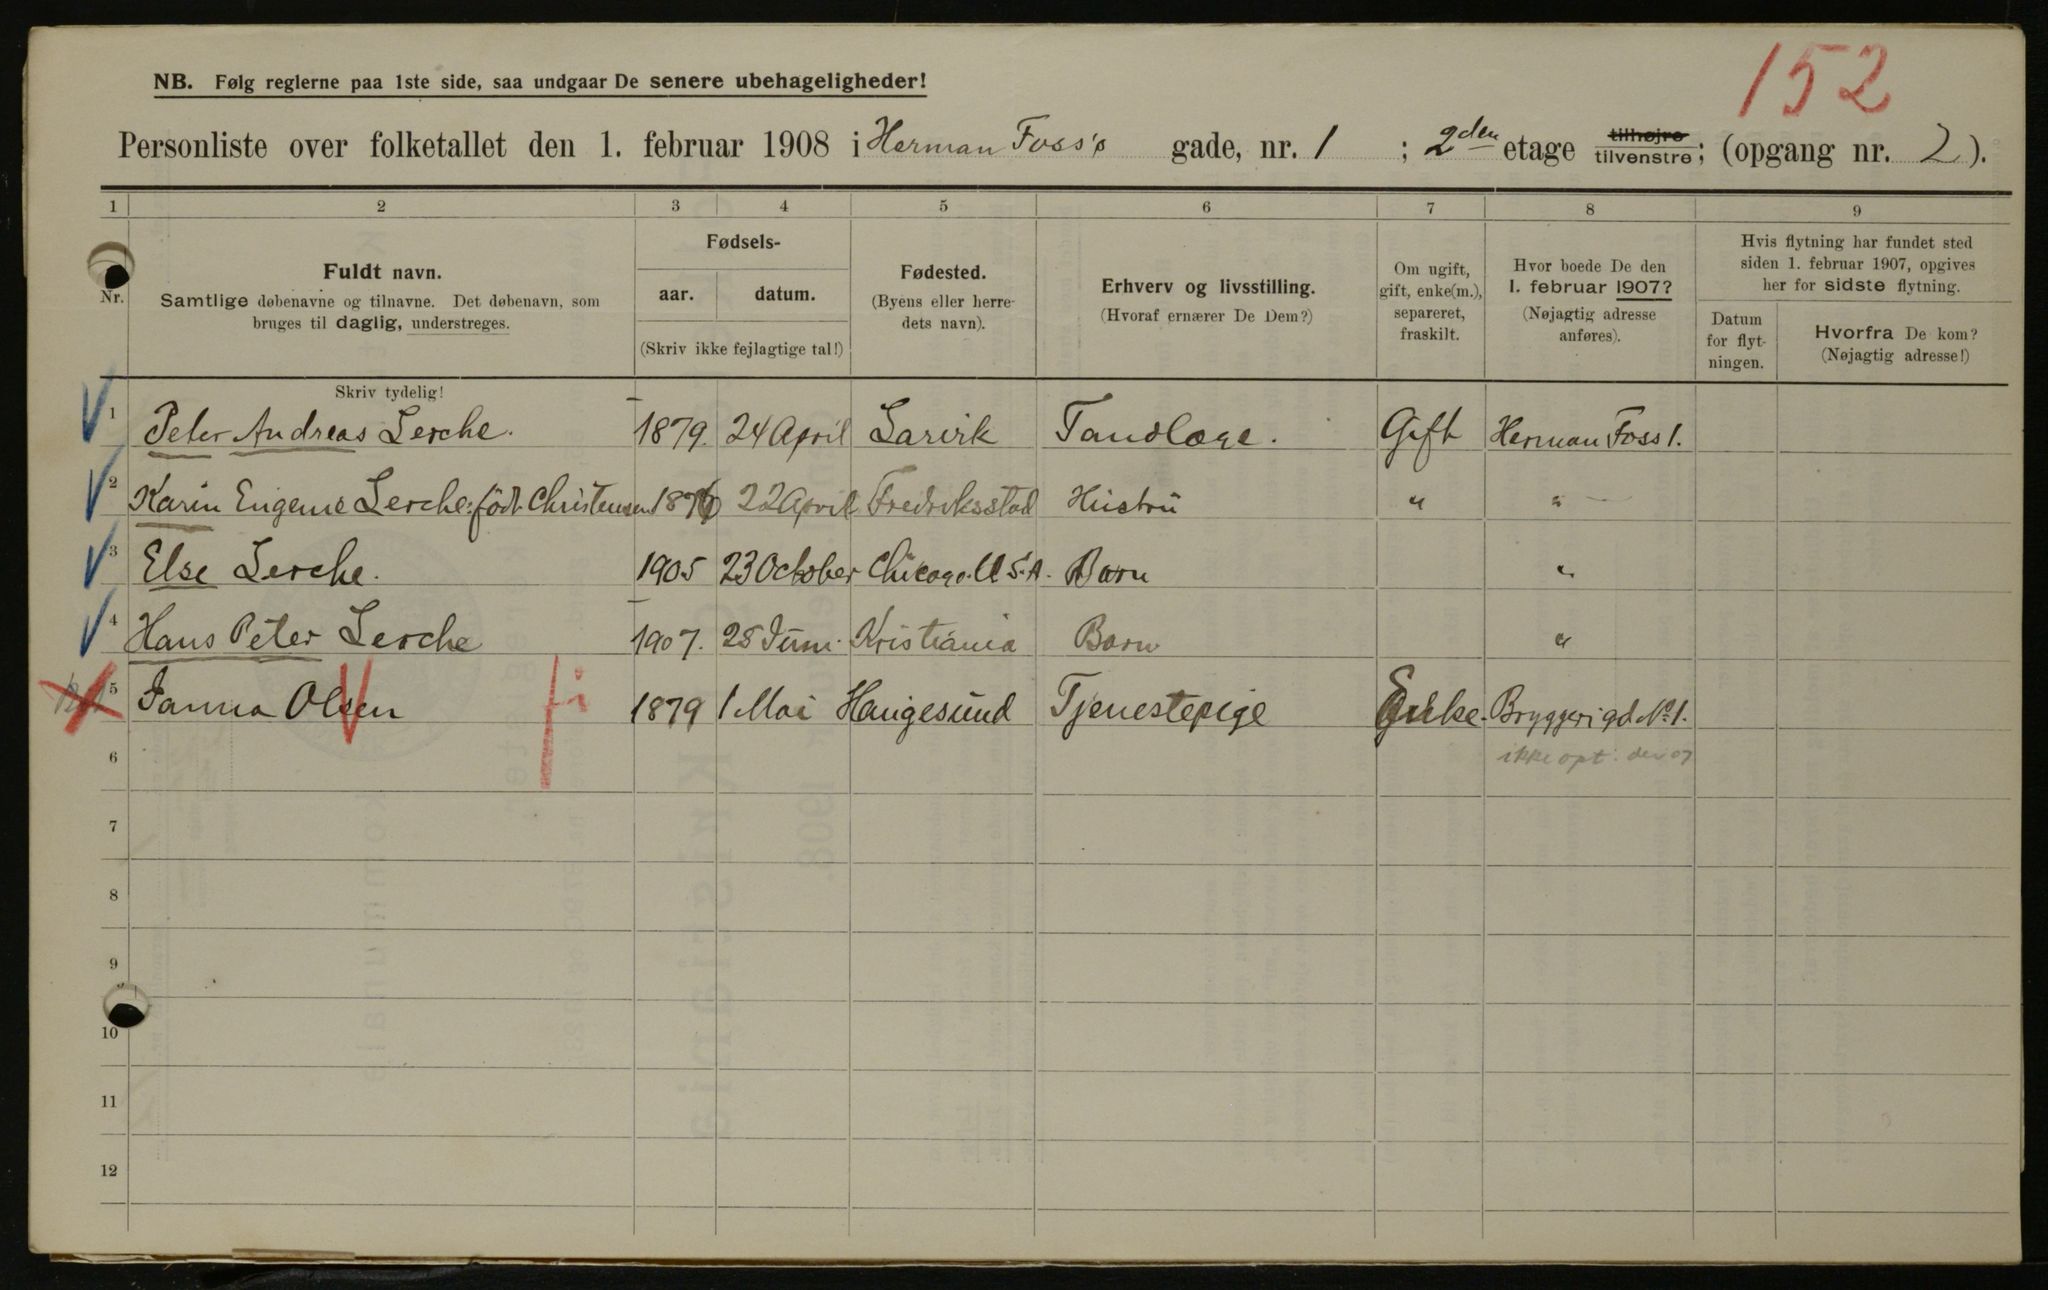 152
NB. Følg reglerne paa 1ste side, saa undgaar De senere ubehageligheder!
Personliste over folketallet den 1. februar 1908 i Herman Foss's gade, nr. 1 ; 2den etage tilhøjre tilvenstre; (opgang nr. 2).
1 2 3 4 5 6 7 8 9
Nr.
Fuldt navn.
Samtlige døbenavne og tilnavne. Det døbenavn, som
bruges til daglig, understreges.
Skriv tydelig!
Fødsels-
aar. datum.
(Skriv ikke fejlagtige tal!)
Fødested.
(Byens eller herre-
dets navn).
Erhverv og livsstilling.
(Hvoraf ernærer De Dem?)
Om ugift,
gift, enke(m.),
separeret,
fraskilt.
Hvor boede De den
1. februar 1907?
(Nøjagtig adresse
anføres).
Hvis flytning har fundet sted
siden 1. februar 1907, opgives
her for sidste flytning.
Datum
for flyt-
ningen.
Hvorfra De kom?
(Nøjagtig adresse!)
1 Peter Andreas Lerche. 1879. 24 April Larvik Tandlæge. Gift Herman Foss 1.
2 Karin Eugenie Lerche: født Christensen 1876 22 April Fredriksstad Hustru " "
3 Else Lerche. 1905 23 October Chicago. U.S.A. Barn "
4 Hans Peter Lerche 1907. 28 Juni. Kristiania Barn "
5 Janna Olsen 1879 1 Mai Haugesund Tjenestepige Enke. Bryggerigd. No 1.
6 ikke opt. der 07
7
8
9
10
11
12